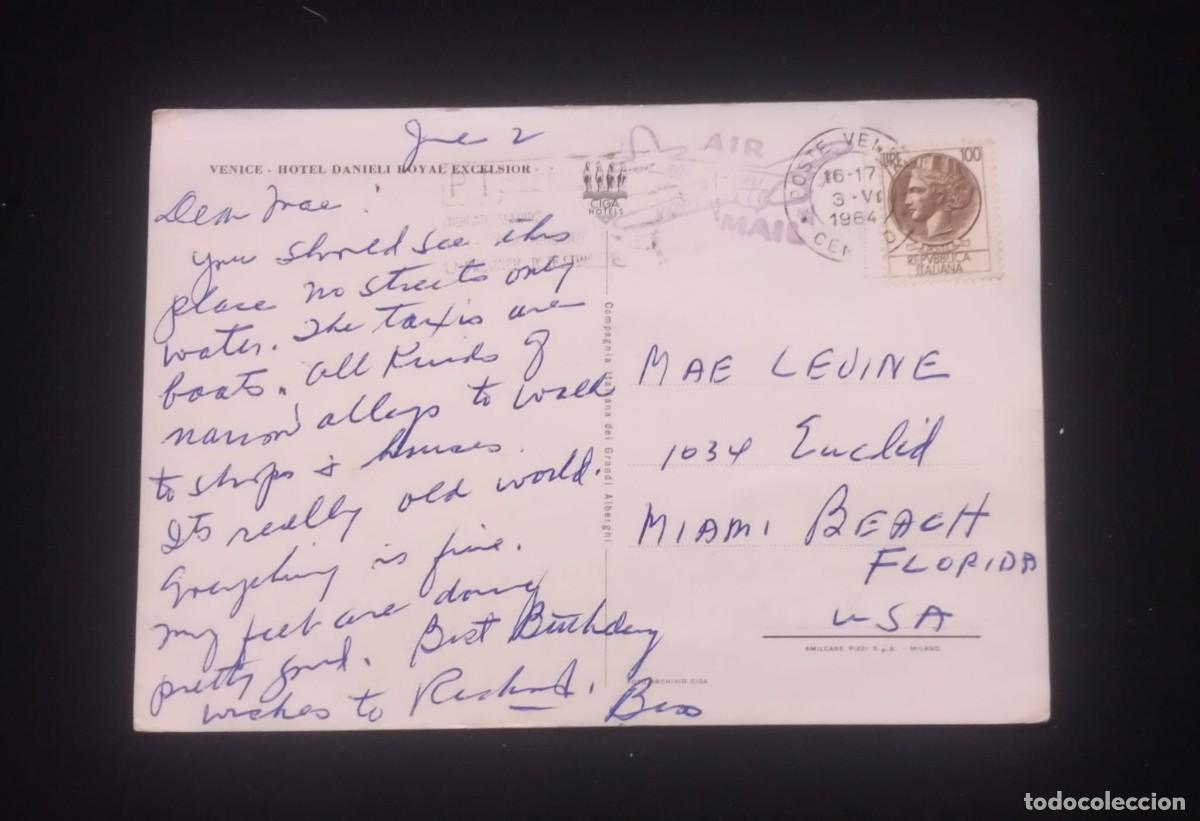 June 2
VENICE - HOTEL DANIELI ROYAL EXCELSIOR
Dear Mae,
You should see this
place no streets only
water. The taxis are
boats. All kinds of
narrow alleys to walk
to shops & houses.
Its really old world.
Everything is fine.
My feet are doing
pretty good. Best Birthday
wishes to Richard. Bess
PT
CIGA
HOTELS
AIR
MAIL
POSTE VEN
16-17
3-VI
1964
CEN
LIRE 100
REPVBBLICA
ITALIANA
Compagnia Italiana dei Grandi Alberghi
MAE LEVINE
1034 Euclid
MIAMI BEACH
FLORIDA
USA
AMILCARE PIZZI S.p.A. - MILANO
FOTO ARCHIVIO CIGA
todocoleccion